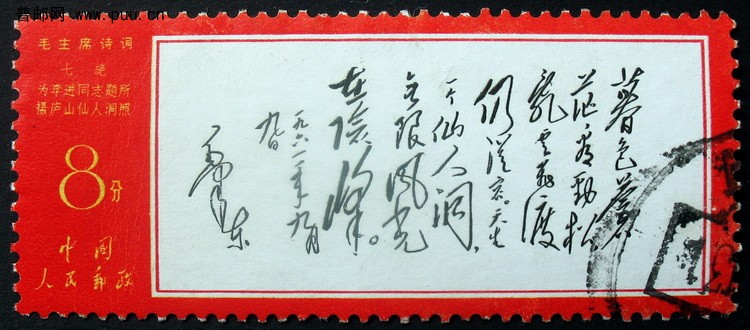 普邮网 www.puu.cn
毛主席诗词
七绝
为李进同志题所
摄庐山仙人洞照
8分
中国
人民郵政
暮色蒼
茫看勁松
亂雲飛渡
仍從容。天生
一个仙人洞,
無限風光
在險峰。
一九六一年九月
九日
毛澤东